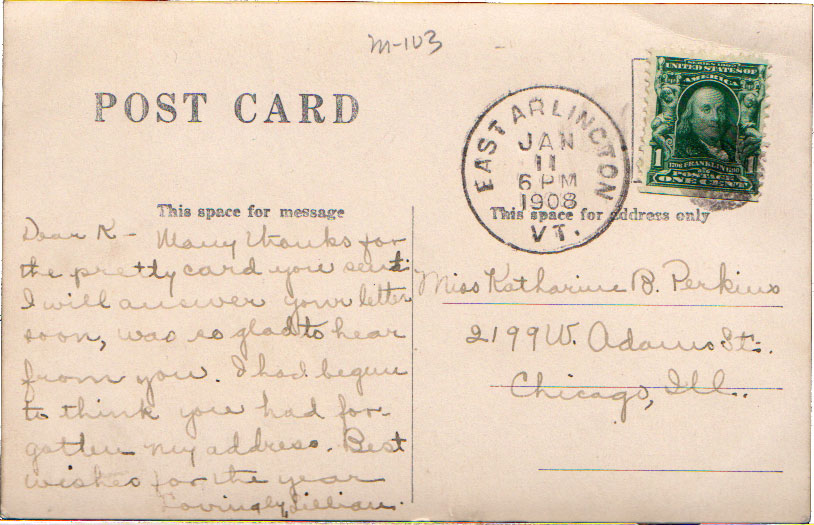 M-103
POST CARD
UNITED STATES OF
AMERICA
1
1
1706 FRANKLIN 1790
POSTAGE
ONE CENT
EAST ARLINGTON
JAN
11
6 PM
1908
VT.
This space for message
This space for address only
Dear K- Many thanks for
the pretty card you sent.
I will answer your letter
soon, was so glad to hear
from you. I had begun
to think you had for-
gotten my address. Best
wishes for the year
Lovingly, Lillian.
Miss Katharine B. Perkins
2199 W. Adams St.
Chicago, Ill.